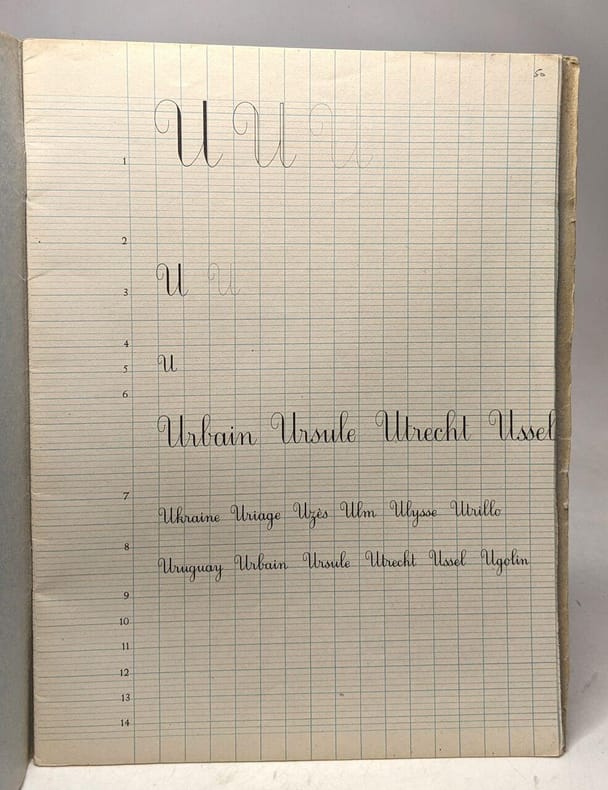 50
U U U
1
2
U U
3
4
U
5
6
Urbain Ursule Utrecht Ussel
7
Ukraine Uriage Uzès Ulm Ulysse Utrillo
8
Uruguay Urbain Ursule Utrecht Ussel Ugolin
9
10
11
12
13
14